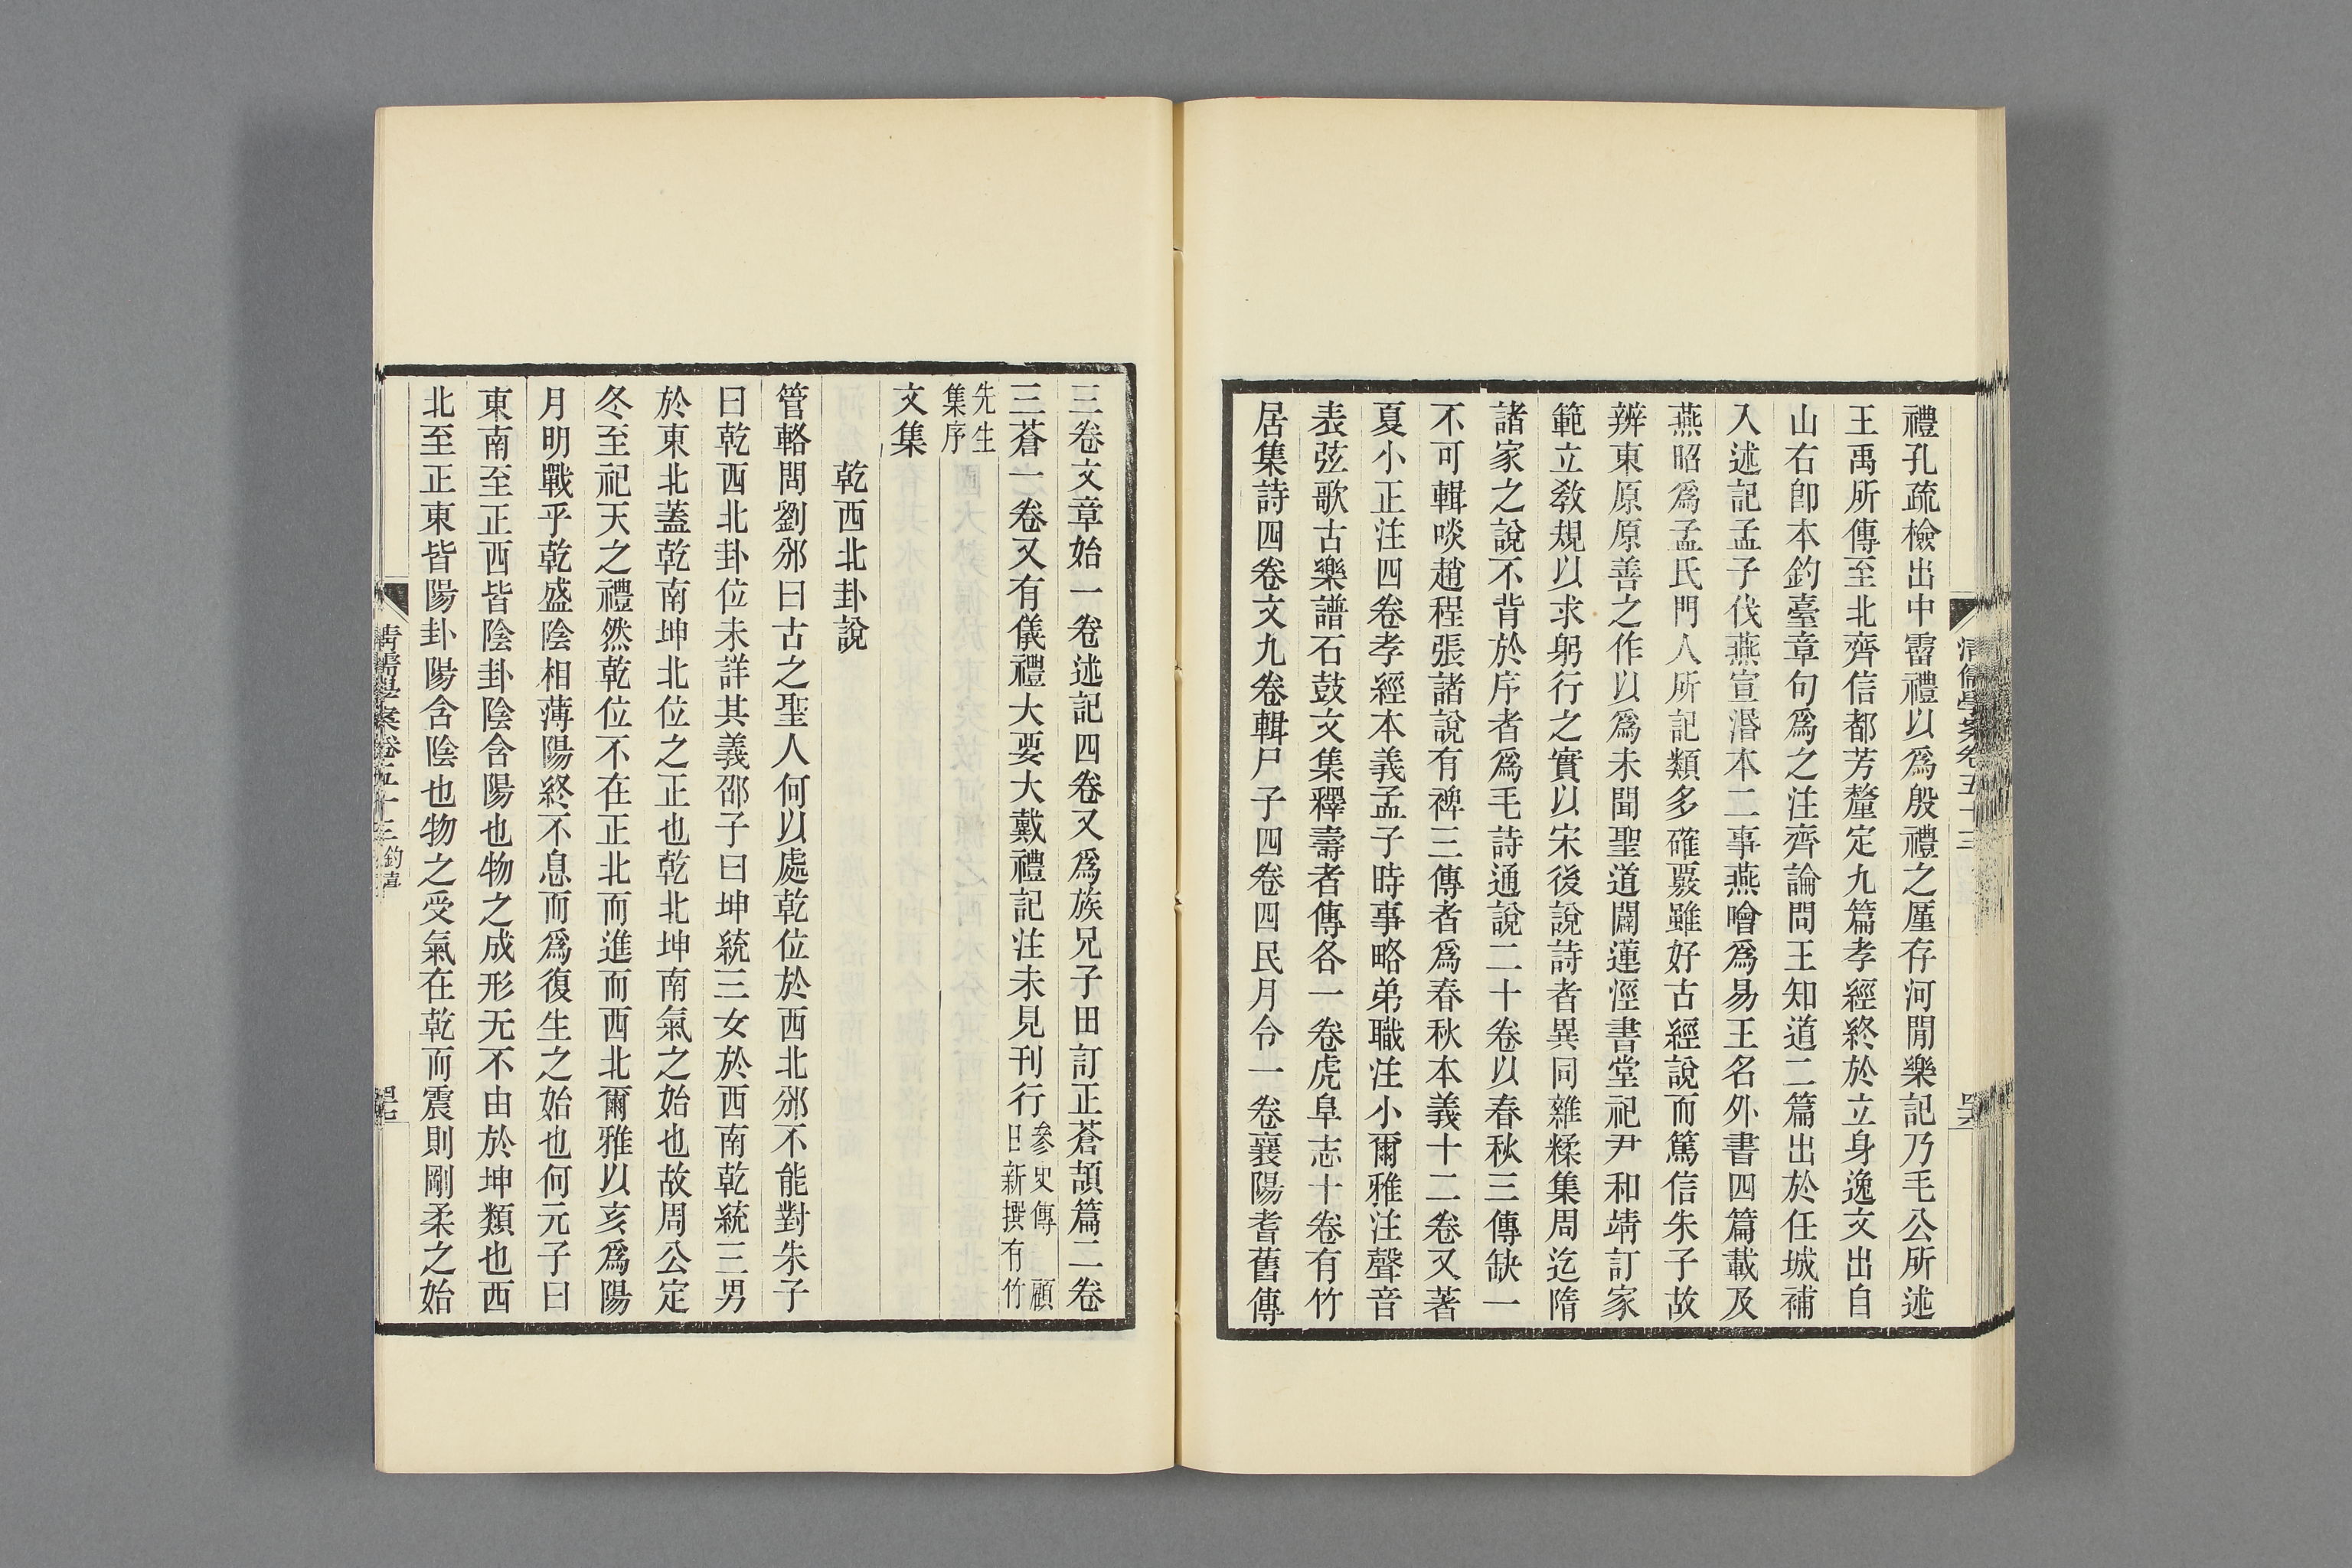 禮孔疏檢出中霤禮以爲殷禮之厪存河閒樂記乃毛公所述
王禹所傳至北齊信都芳釐定九篇孝經終於立身逸文出自
山右卽本釣臺章句爲之注齊論問王知道二篇出於任城補
入述記孟子伐燕宣湣本二事燕噲爲易王名外書四篇載及
燕昭爲孟氏門人所記類多確覈雖好古經說而篤信朱子故
辨東原原善之作以爲未聞聖道闢蓮涇書堂祀尹和靖訂家
範立敎規以求躬行之實以宋後說詩者異同雜糅集周迄隋
諸家之說不背於序者爲毛詩通說二十卷以春秋三傳缺一
不可輯啖趙程張諸說有裨三傳者爲春秋本義十二卷又著
夏小正注四卷孝經本義孟子時事略弟職注小爾雅注聲音
表弦歌古樂譜石鼓文集釋壽者傳各一卷虎阜志十卷有竹
居集詩四卷文九卷輯尸子四卷四民月令一卷襄陽耆舊傳
清儒學案卷五十三
三卷文章始一卷述記四卷又爲族兄子田訂正蒼頡篇二卷
三蒼一卷又有儀禮大要大戴禮記注未見刊行
參史傳 顧
日新撰有竹
先生
集序
文集
乾西北卦說
管輅問劉邠曰古之聖人何以處乾位於西北邠不能對朱子
曰乾西北卦位未詳其義邵子曰坤統三女於西南乾統三男
於東北蓋乾南坤北位之正也乾北坤南氣之始也故周公定
冬至祀天之禮然乾位不在正北而進而西北爾雅以亥爲陽
月明戰乎乾盛陰相薄陽終不息而爲復生之始也何元子曰
東南至正西皆陰卦陰含陽也物之成形无不由於坤類也西
北至正東皆陽卦陽含陰也物之受氣在乾而震則剛柔之始
清儒學案卷五十三 釣臺